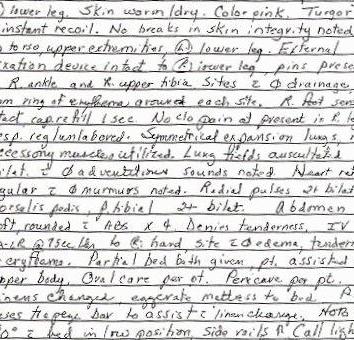 lower leg. Skin warm/dry. Color pink. Turgor
instant recoil. No breaks in skin integrity noted
torso, upper extremities, Ⓛ lower leg. External
xation device intact to Ⓡ lower leg, pins prese
R. ankle and R. upper tibia sites c̄ Ø drainage,
m ring of erythema around each site. R. foot sens
tact cap refill 1 sec. No c/o pain at present in R. le
esp. reg/unlabored. Symmetrical expansion lungs,
ccessory muscles utilized. Lung fields auscultated
ilat. c̄ Ø adventitious sounds noted. Heart rat
gular c̄ Ø murmurs noted. Radial pulses 2+ bilat
orsalis pedis, p. tibial 2+ bilat. Abdomen
oft, rounded c̄ ABS x 4. Denies tenderness. IV
LR @ 75cc/hr to hand, site c̄ Ø edema, tendern
erythema. Partial bed bath given, pt. assisted
pper body. Oral care per pt. Pericare per pt.
inens changed, eggcrate mattress to bed. P
ses trapeze bar to assist c̄ linen change. HOB
0° c̄ bed in low position, side rails ↑ Call ligh